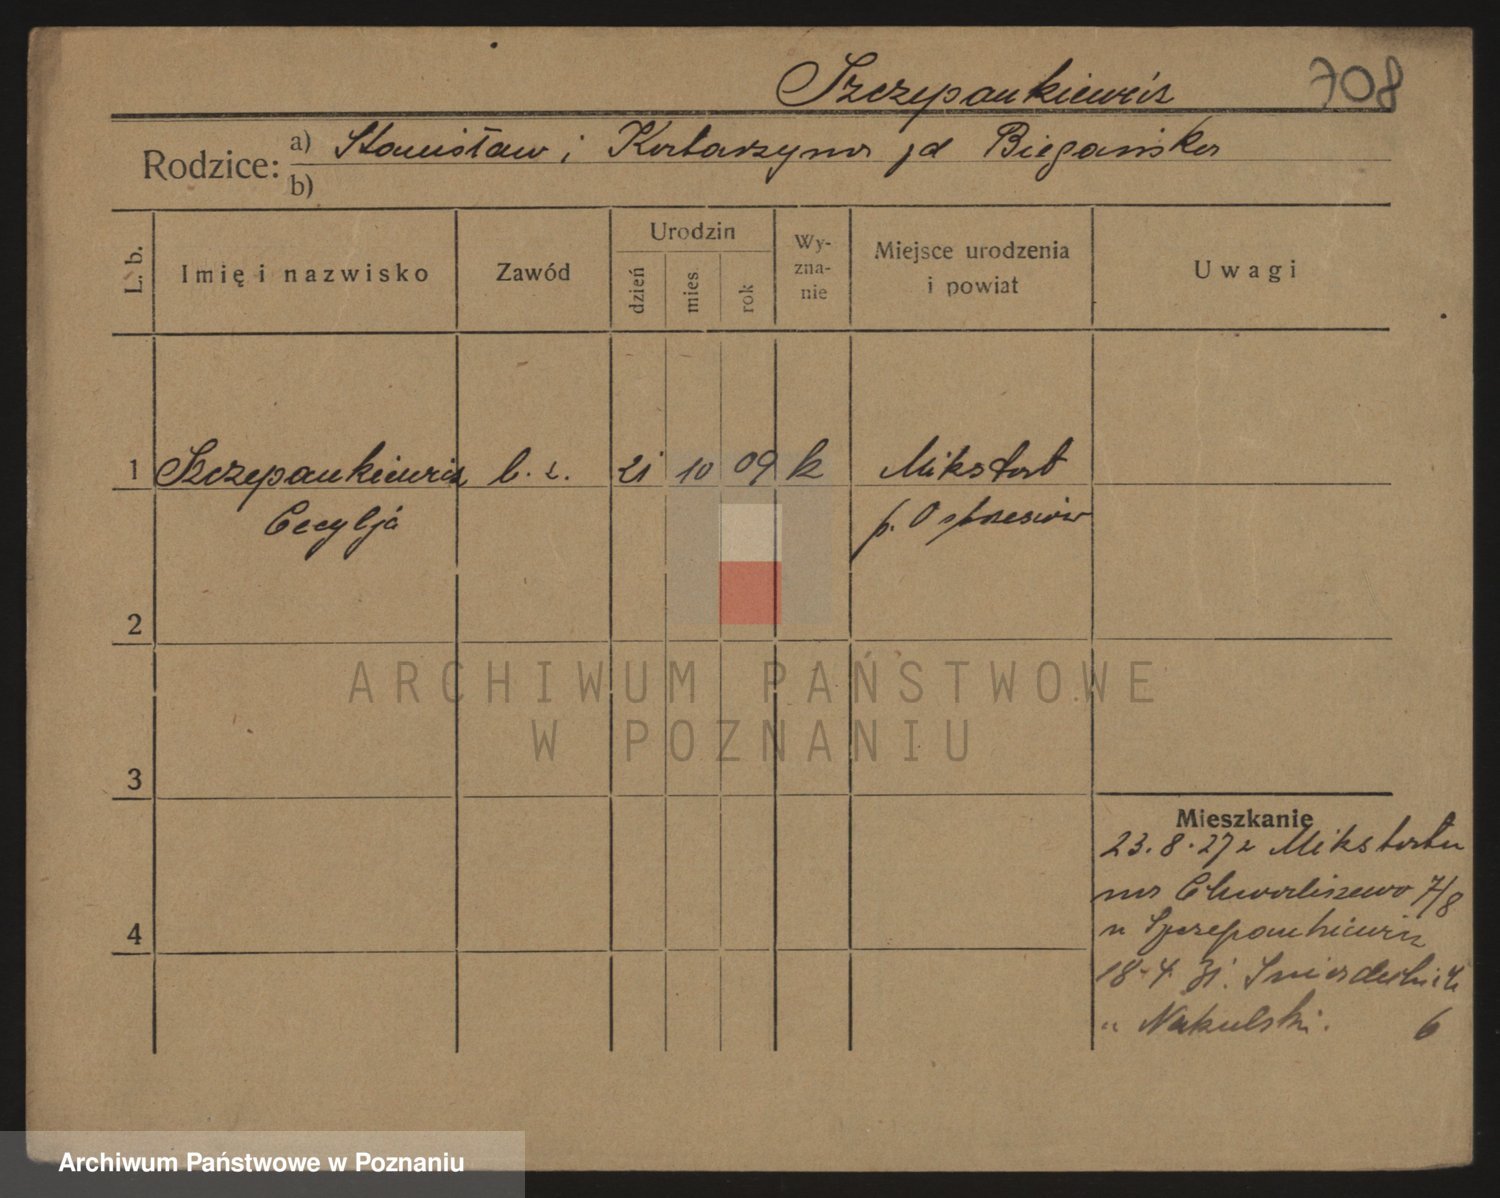 Szczepankiewicz 708
Rodzice: a) Stanisław i Katarzyna zd Biegańska
b)
L. b.
Imię i nazwisko
Zawód
Urodzin
dzień
mies
rok
Wy-
zna-
nie
Miejsce urodzenia
i powiat
Uwagi
1 Szczepankiewicz b. z. 21 10 09 k Mikstat
Cecylja p. Ostrzeszów
2
3
4
Mieszkanie
23.8.27 z Mikstatu
na Chwaliszewo 7/8
u Szczepankiewicz
18.4.31. Śniadeckich
u Nakulski. 6
ARCHIWUM PAŃSTWOWE
W POZNANIU
Archiwum Państwowe w Poznaniu